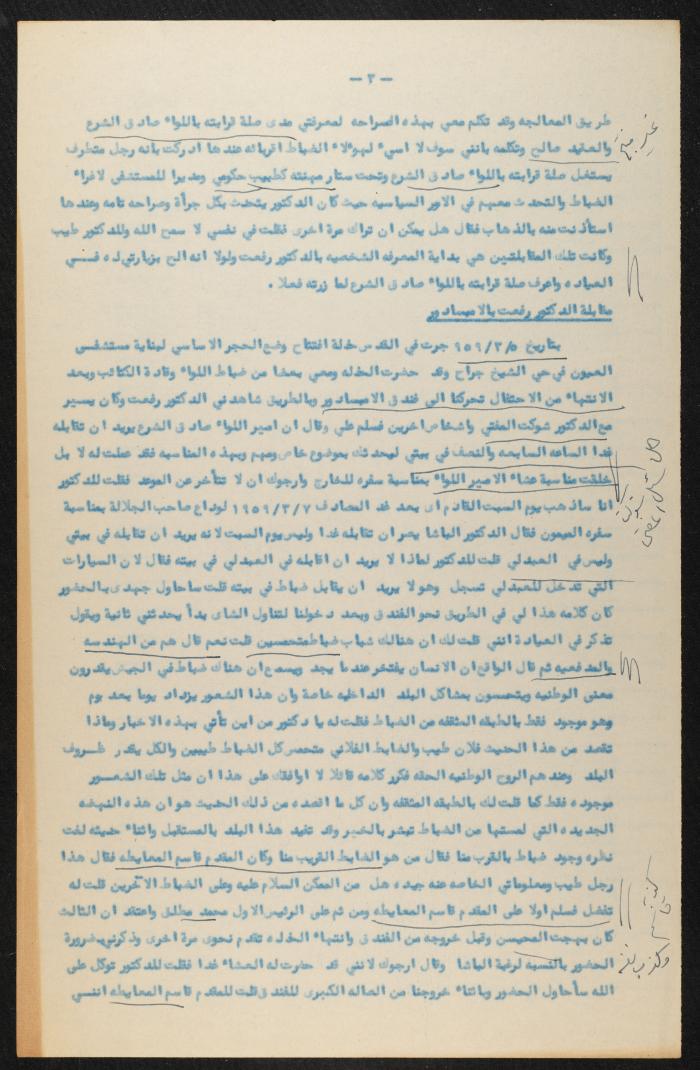 — ٣ —
طريق المعالجه وقد تكلم معي بهذه الصراحه لمعرفتي مدى صلة قرابته باللواء صادق الشرع
والعقيد صالح وتكلمه بانني سوف لا اسيء لهولاء الضباط اقربائه عندها ادركت بانه رجل متطرف
يستغل صلة قرابته باللواء صادق الشرع وتحت ستار مهنته كطبيب حكومي ومديرا للمستشفى لاغراء
الضباط والتحدث معهم في الامور السياسيه حيث كان الدكتور يتحدث بكل جرأة وصراحه تامه وعندها
استأذنت منه بالذهاب فقال هل يمكن ان تراك مرة اخرى فقلت في نفسي لا سمح الله وللدكتور طيب
وكانت تلك المقابلتين هي بداية المعرفه الشخصيه بالدكتور رفعت ولولا انه الح بزيارتي له فسي
العياده واعرف صلة قرابته باللواء صادق الشرع لما زرته فعلا .
مقابلة الدكتور رفعت بالامبسادور
بتاريخ ٩٥٩/٣/٥ جرت في القدس حفلة افتتاح وضع الحجر الاساسي لبناية مستشفسى
العيون في حي الشيخ جراح وقد حضرت الحفله ومعي بعضا من ضباط اللواء وقادة الكتائب وبعد
الانتهاء من الاحتفال تحركنا الى فندق الامبسادور وبالطريق شاهدني الدكتور رفعت وكان يسير
مع الدكتور شوكت المفتي واشخاص اخرين فسلم علي وقال ان امير اللواء صادق الشرع يريد ان تقابله
غدا الساعه السابعه والنصف في بيتي ليحدثك بموضوع خاص ومهم وبهذه المناسبه فقد عملت له لا بل
خلقت مناسبة عشاء الامير اللواء بمناسبة سفره للخارج وارجوك ان لا تتأخر عن الموعد فقلت للدكتور
انا ساذهب يوم السبت القادم اى بعد غد المصادف ١٩٥٩/٣/٧ لوداع صاحب الجلالة بمناسبة
سفره الميمون فقال الدكتور الباشا يصر ان تقابله غدا وليس يوم السبت لانه يريد ان تقابله في بيتي
وليس في العبدلي قلت للدكتور لماذا لا يريد ان اقابله في العبدلي في بيته فقال لان السيارات
التي تدخل للعبدلي تسجل وهو لا يريد ان يقابل ضباط في بيته قلت ساحاول جهدى بالحضور
كان كلامه هذا لي في الطريق نحو الفندق وبعد دخولنا لتناول الشاى بدأ يحدثني ثانية ويقول
تذكر في العيادة انني قلت لك ان هنالك شباب ضباط متحمسين قلت نعم قال هم من الهندسه
والمدفعيه ثم قال الواقع ان الانسان يفتخر عندما يجد ويسمع ان هناك ضباط في الجيش يقدرون
معنى الوطنيه ويتحسسون بمشاكل البلد الداخليه خاصة وان هذا الشعور يزداد يوما بعد يوم
وهو موجود فقط بالطبقه المثقفه من الضباط فقلت له يا دكتور من اين تأتي بهذه الاخبار وماذا
تقصد من هذا الحديث فلان طيب والضابط الفلاني متحمس كل الضباط طيبين والكل يقدر ظسروف
البلد وعندهم الروح الوطنيه الحقه فكرر كلامه قائلا لا اوافقك على هذا ان مثل تلك الشعسور
موجوده فقط كما قلت لك بالطبقه المثقفه وان كل ما اقصده من ذلك الحديث هو ان هذه النهضه
الجديده التي لمستها من الضباط تبشر بالخير وقد تفيد هذا البلد بالمستقبل واثناء حديثه لفت
نظره وجود ضباط بالقرب منا فقال من هو الضابط القريب منا وكان المقدم قاسم المعايطه فقال هذا
رجل طيب ومعلوماتي الخاصه عنه جيده هل من الممكن السلام عليه وعلى الضباط الآخرين قلت له
تفضل فسلم اولا على المقدم قاسم المعايطه ومن ثم على الرئيس الاول محمد مطلق واعتقد ان الثالث
كان بهجت المحيسن وقبل خروجه من الفندق وانتهاء الحفله تقدم نحوى مرة اخرى وذكرني بضرورة
الحضور بالنسبه لرغبة الباشا وقال ارجوك لانني قد حضرت له العشاء غدا فقلت للدكتور توكل على
الله سأحاول الحضور وباثناء خروجنا من الصاله الكبرى للفندق قلت للمقدم قاسم المعايطه انسي